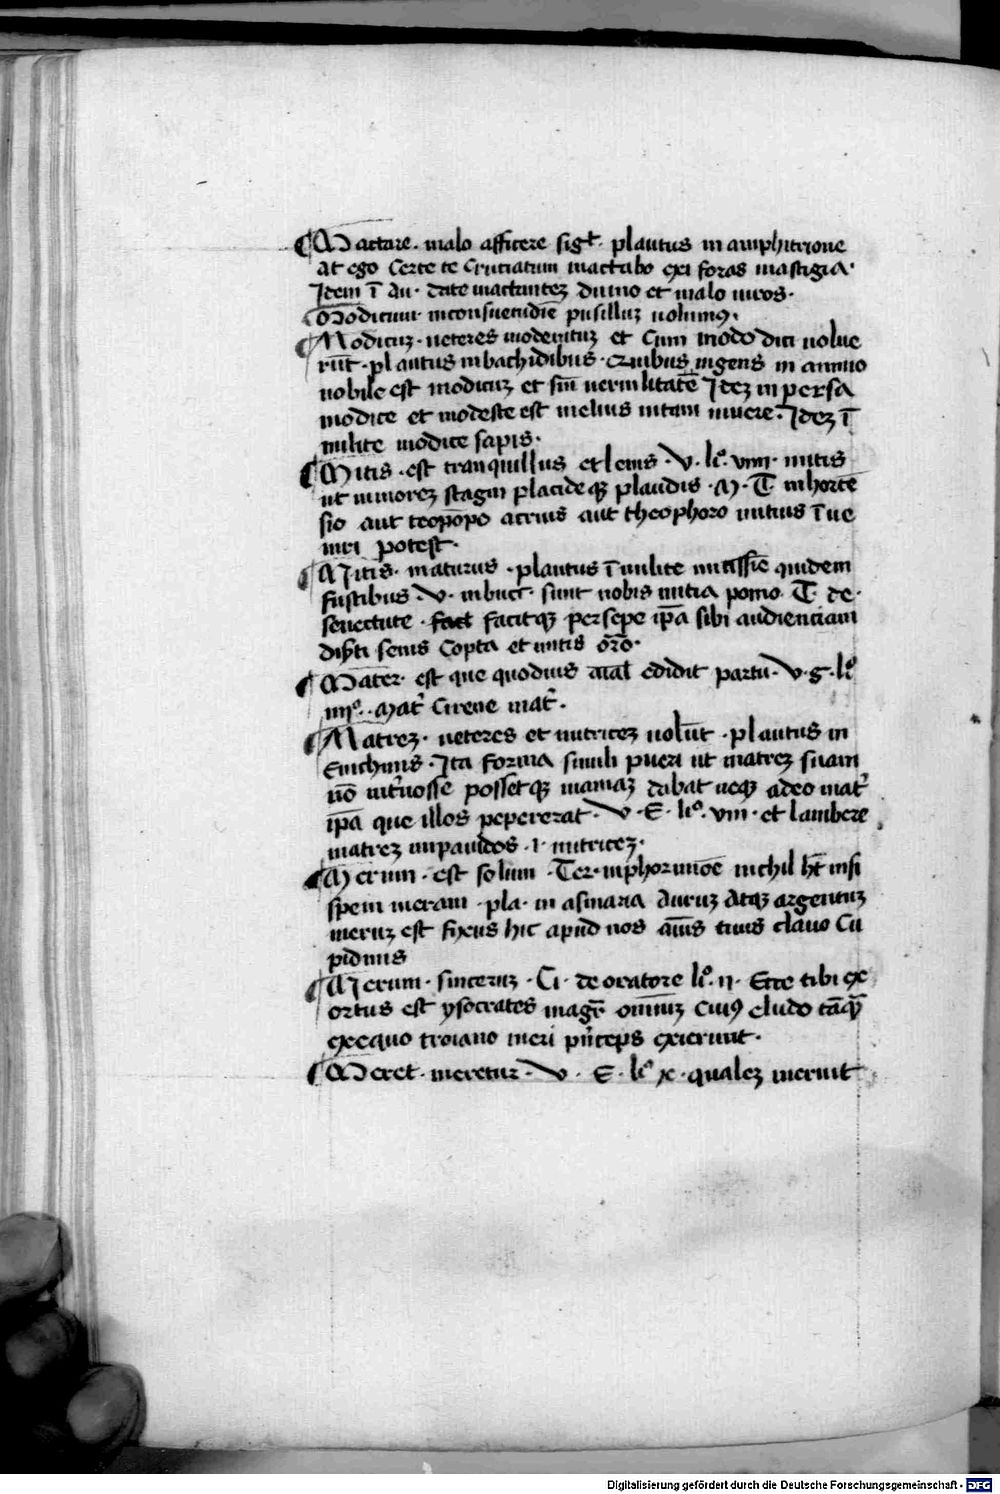 ¶ Mactare · malo afficere sigt̄ · plautus in amphitrione
at ego Certe te Cruciatum mactabo exi foras mastigia ·
Idem ī Au · date mactantez diuino et malo uiros ·
¶ Modicum · inconsuetudīe pusilluz uolumꝰ ·
¶ Modicuz · ueteres moderatuz et Cum modo dici uolue
rūt · plautus in bachidibus · Quibus ingens in animo
nobile est modicuz et sin̄ uernilitatē Idez in persa
modice et modeste est melius uitam uiuere · Idez ī
milite modice sapis ·
¶ Mitis · est tranquillus et lenis · V · li° · viiii · mitis
ut in morez stagni placideqꝫ plaudis · M · T̄ · in horten
sio aut teopōpo acrius aut theophoro mitius īue
niri potest ·
¶ Mitis · maturus · plautus ī milite mitissīe quidem
fustibus · V · in buc̄ · sunt nobis mitia poma · T̄ · de ·
senectute · facitqꝫ persepe ip̄a sibi audienciam
senis Copta et mitis or̄o ·
¶ Mater · est que quoduis aīal edidit partu · V · G · li°
iiii° · Mat̄ Cirene mat̄ ·
¶ Matrez · ueteres et nutricez uolūt · plautus in
Euichinis · Ita forma simili pueri ut matrez suam
nō int̄nosse possetqꝫ mamaz dabat neqꝫ adeo mat̄
ip̄a que illos pepererat · V · E · li° · viii · et lambere
matrez impauidos · i · nutricez ·
¶ Merum · est solum · Ter · in phormiōe nichil hēt insi
spem meram · pla · in asinaria Auruz Atqꝫ argentuz
meruz est fixus hic apud nos aīus tuus clauo Cu
pidinis
¶ Merum · sinceruz · Ci · de oratore li° · ii · Ecce tibi ex
ortus est ysocrates magr̄ omniuz Cuiꝰ eludo tāqꝫ
ex equo troiano meri pn̄ceps exierunt ·
¶ Meret · meretur · V · E · li° x · qualez meruit
Digitalisierung gefördert durch die Deutsche Forschungsgemeinschaft - DFG